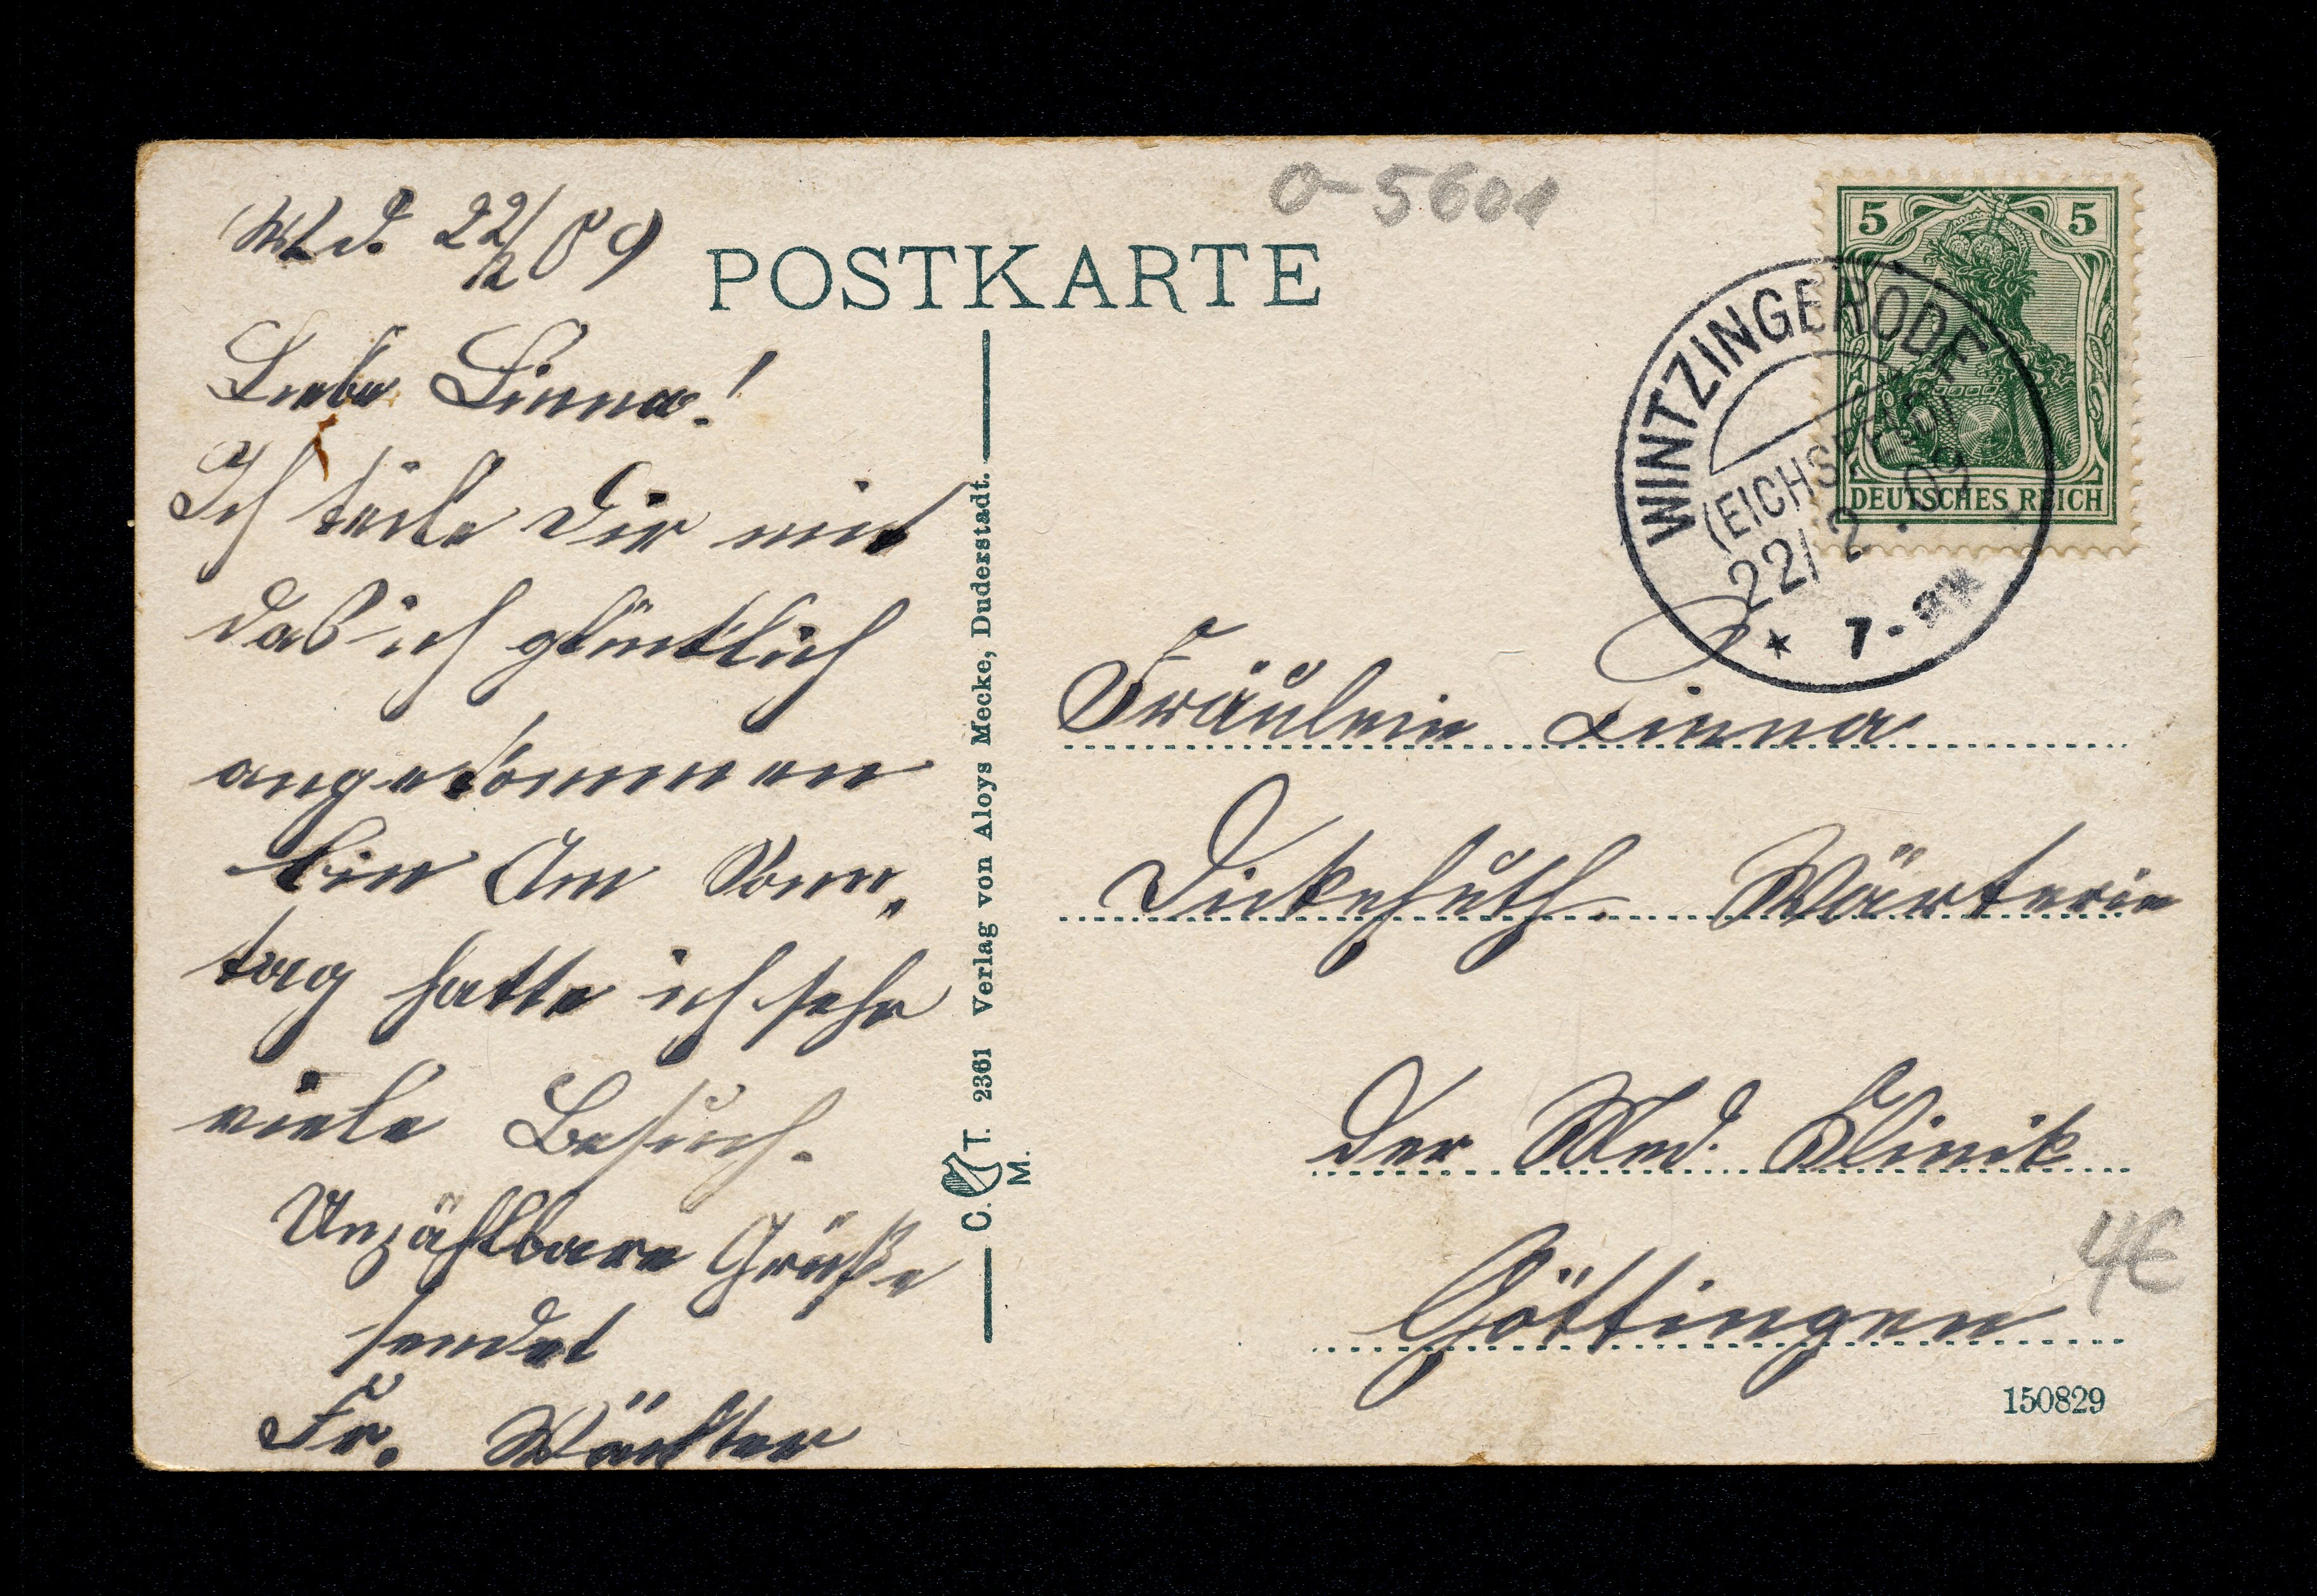 O-5601
POSTKARTE
22/2 09
Liebe Linna!
Ich teile Dir mit
daß ich glücklich
angekommen
bin Am Sonn„
tag hatte ich sehr
viele Besuch.
Unzählbare Grüße
sendet
Fr. Wächter
C. T. 2361 Verlag von Aloys Mecke, Duderstadt.
M.
5 5
DEUTSCHES REICH
WINTZINGERODE
(EICHSFELD)
22/2.09
* 7-8N *
Fräulein Linna
Dickehuth. Wärterin
der Med. Klinik
Göttingen
4€
150829